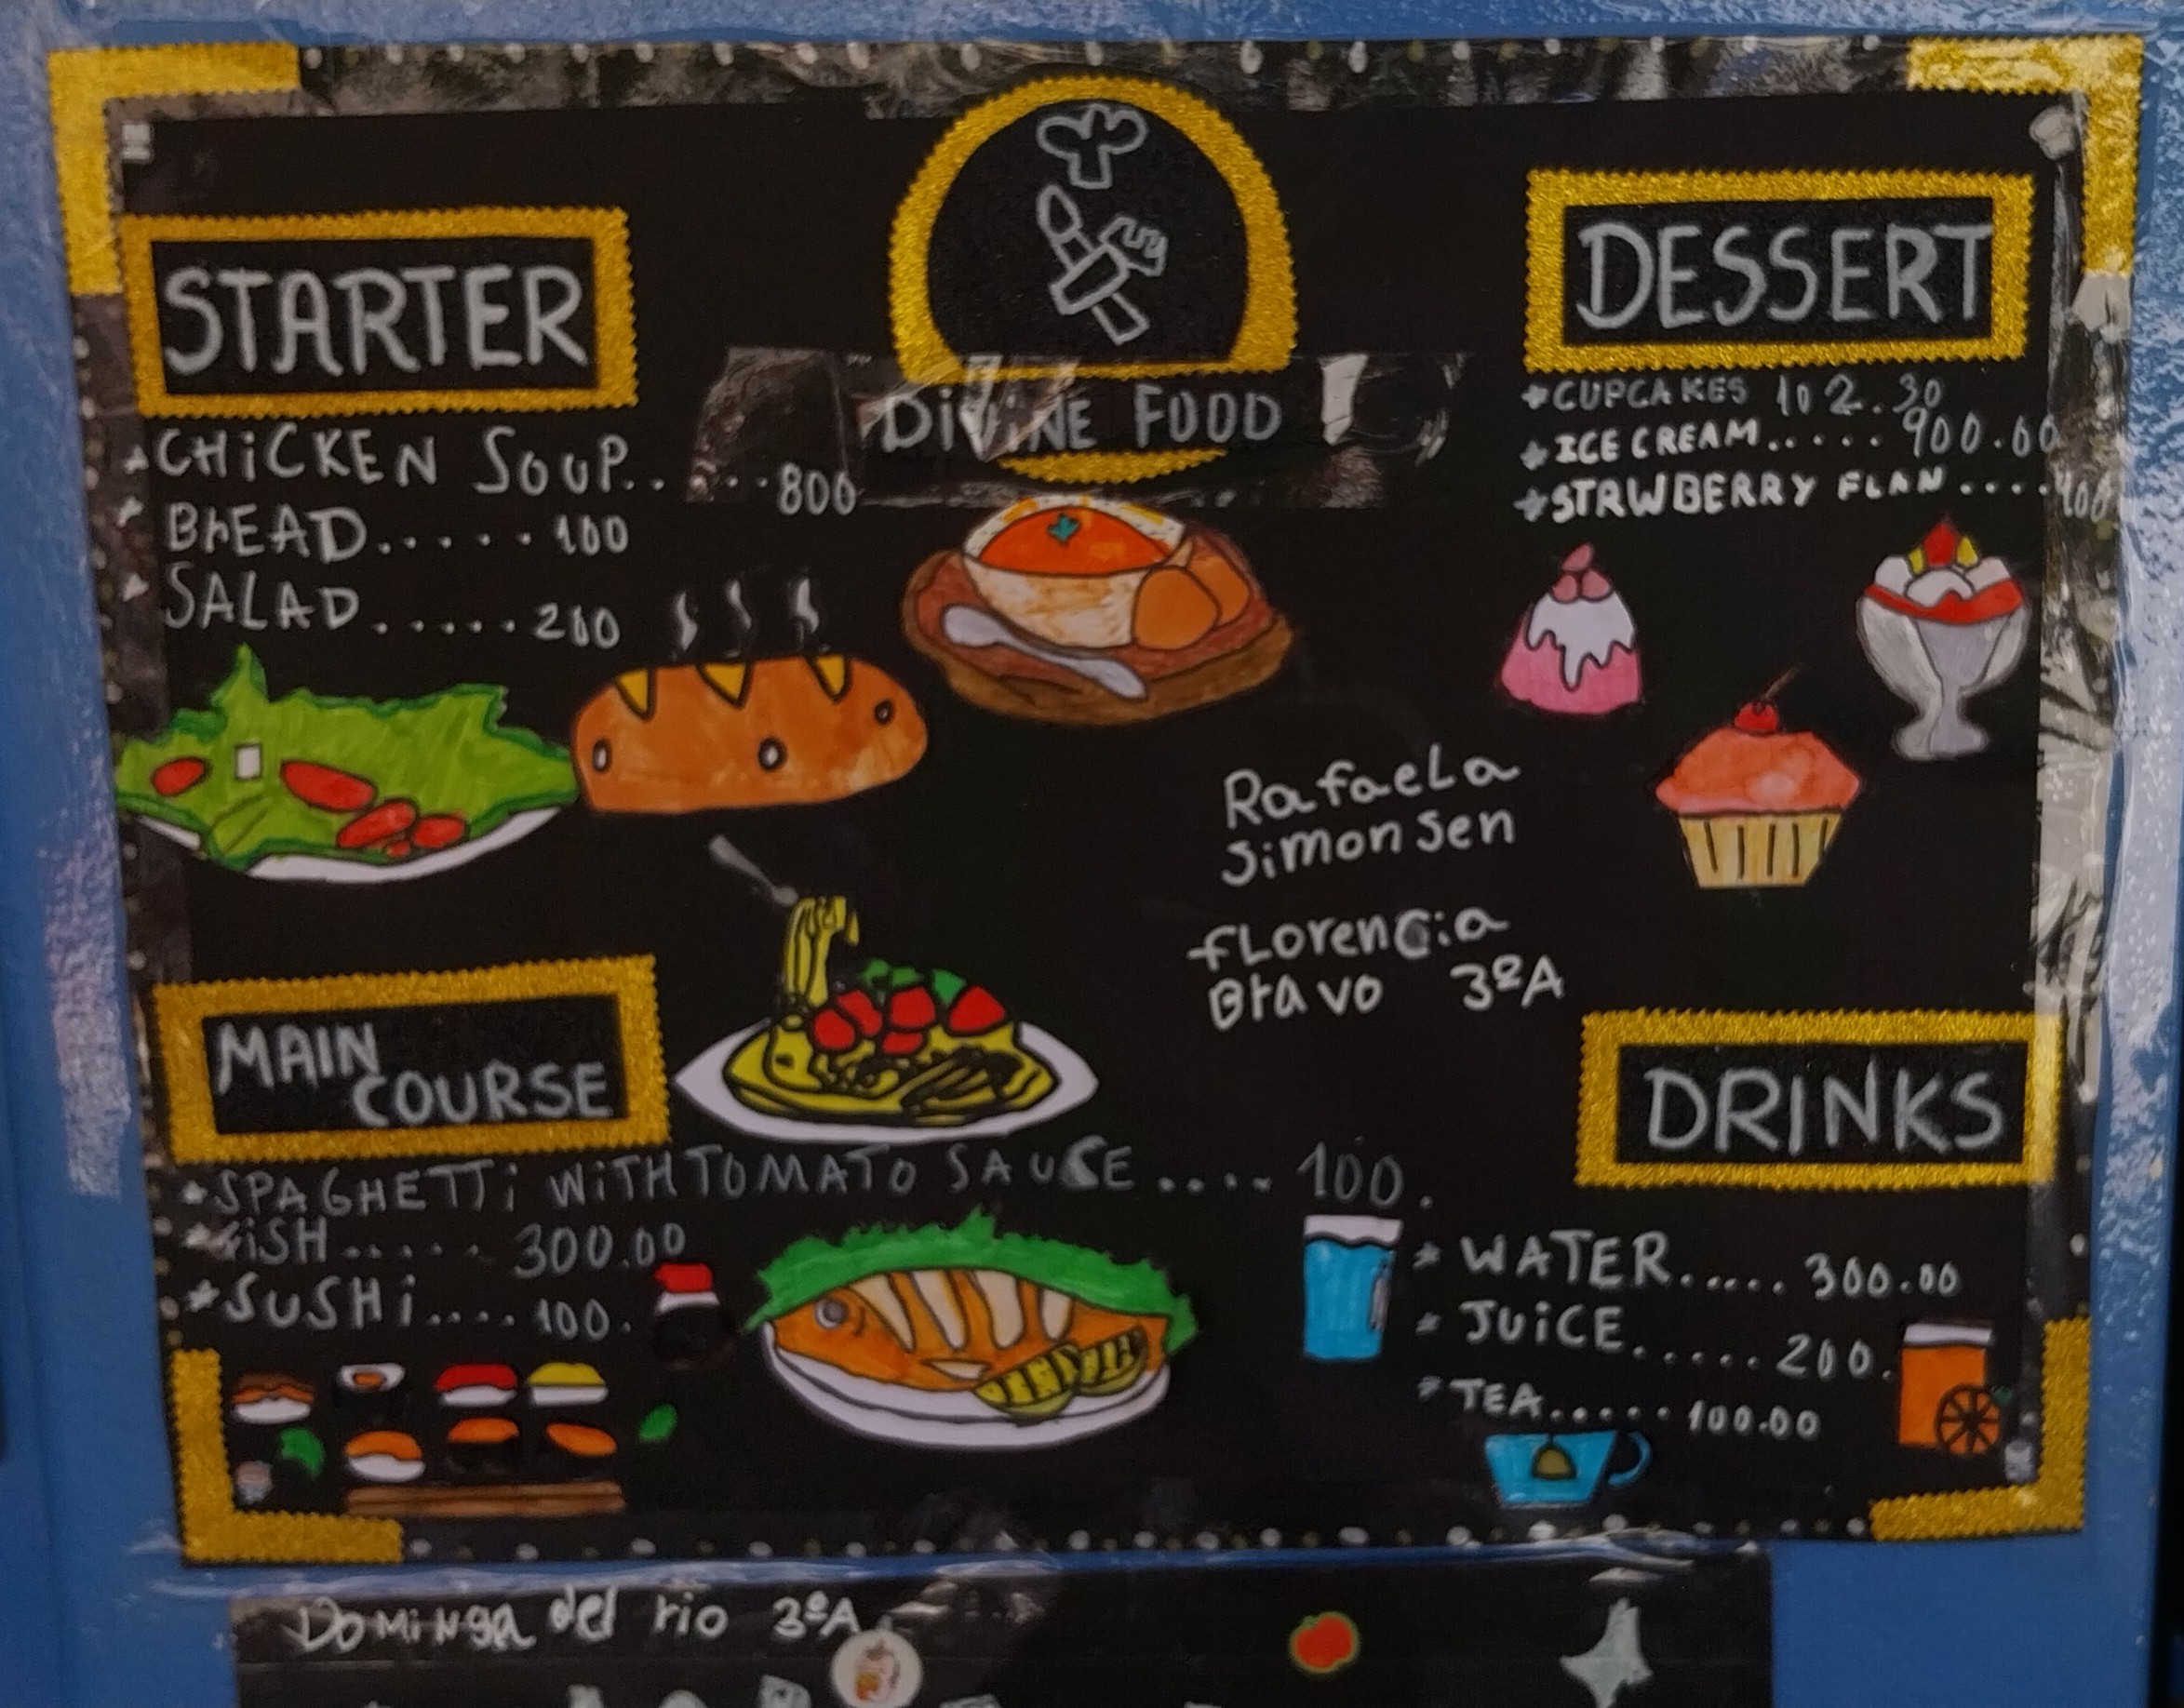 DiViNE FOOD
STARTER
*CHiCKEN SOUP......800
*BrEAD......100
*SALAD......200
MAIN
COURSE
*SPAGHETTi WiTH TOMATO SAUCE.... 100.
*FiSH...... 300.00
*SUSHi.... 100.
Rafaela
Simonsen
florencia
Bravo 3ºA
DESSERT
*CUPCAKES 102.30
*ICE CREAM..... 900.00
*STRWBERRY FLAN ....400
DRINKS
*WATER...... 300.00
*JUiCE...... 200.
*TEA...... 100.00
DOMiNga del rio 3ºA